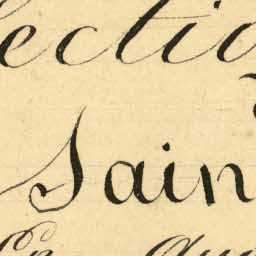 ectio
Sain